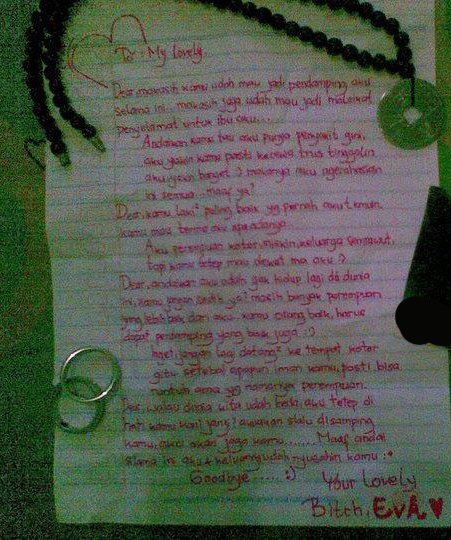 To : My lovely
Dear makasih kamu udah mau jadi pendamping aku
selama ini... makasih juga udah mau jadi malaikat
penyelamat untuk ibu aku.....
Andaikan kamu tau aku punya penyakit gini,
aku yakin kamu pasti kecewa trus tinggalin
aku yakin banget :) makanya aku ngerahasiain
ini semua... maaf ya?
Dear, kamu laki² paling baik yg pernah aku temuin
kamu mau terima aku apa adanya
Aku perempuan kotor, miskin, keluarga semrawut,
tapi kamu tetep mau deket ma aku :)
Dear, andaikan aku udah gak hidup lagi da dunia
ini, kamu jangan sedih ya? masih banyak perempuan
yang lebih baik dari aku. kamu orang baik, harus
dapat pendamping yang baik juga :)
inget, jangan lagi datang² ke tempat kotor
gitu setebal apapun iman kamu, pasti bisa
runtuh ama yg namanya perempuan.
Dear, walau dunia kita udah beda, aku tetep di
hati kamu kan? yang? awakan slalu disamping
kamu, aku akan jaga kamu....... Maaf andai
slama ini aku + keluarga udah nyusahin kamu :*
Goodbye ..... :)
Your Lovely
Bitch, EVA